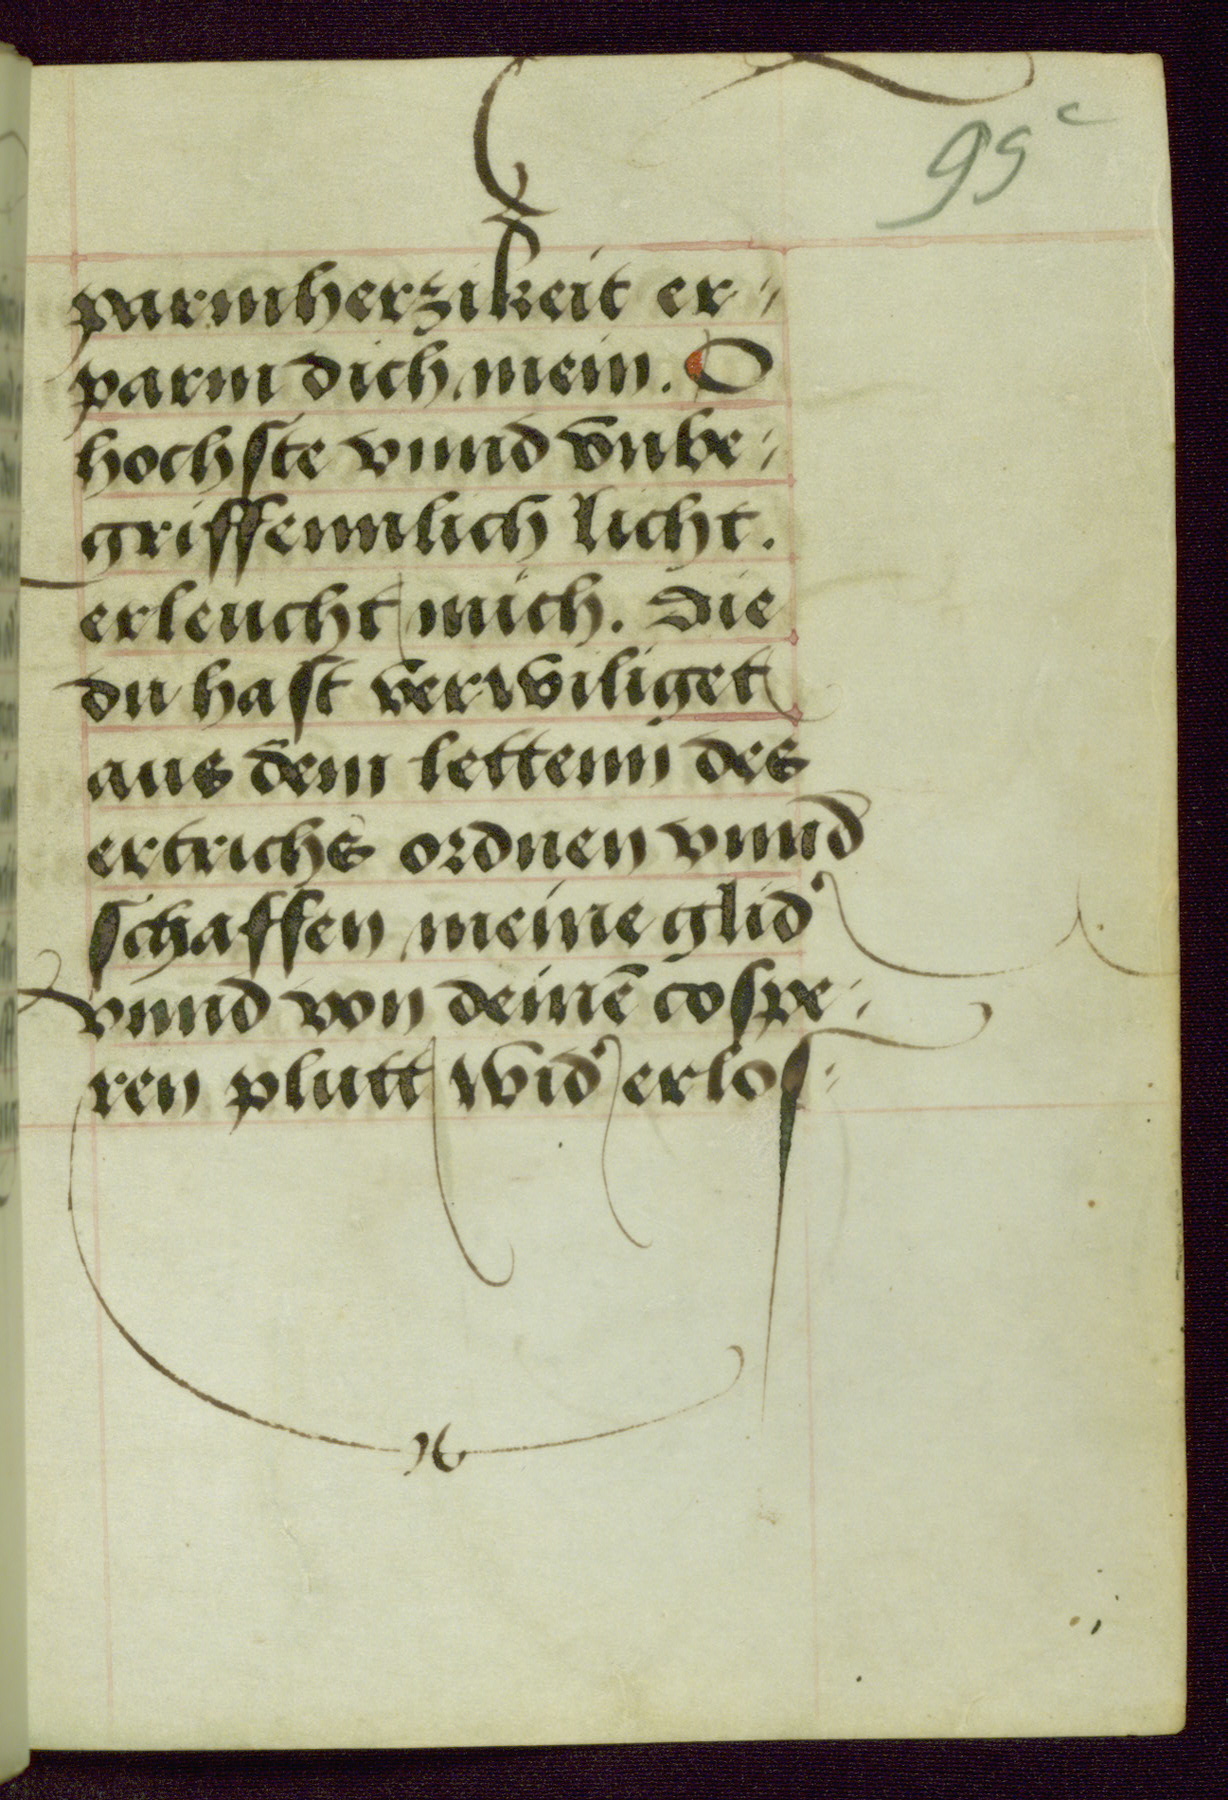 95c
parmherzikeit er⸗
parm dich mein. O
hochſte vnnd vnbe⸗
griffennlich licht.
erleucht mich. Die
du haſt verwiliget
aus dem lettenn des
ertrichs ordnen vnnd
ſchaffen meine glid'
vnnd von deinē coſpe⸗
ren plutt wid' erloſ⸗